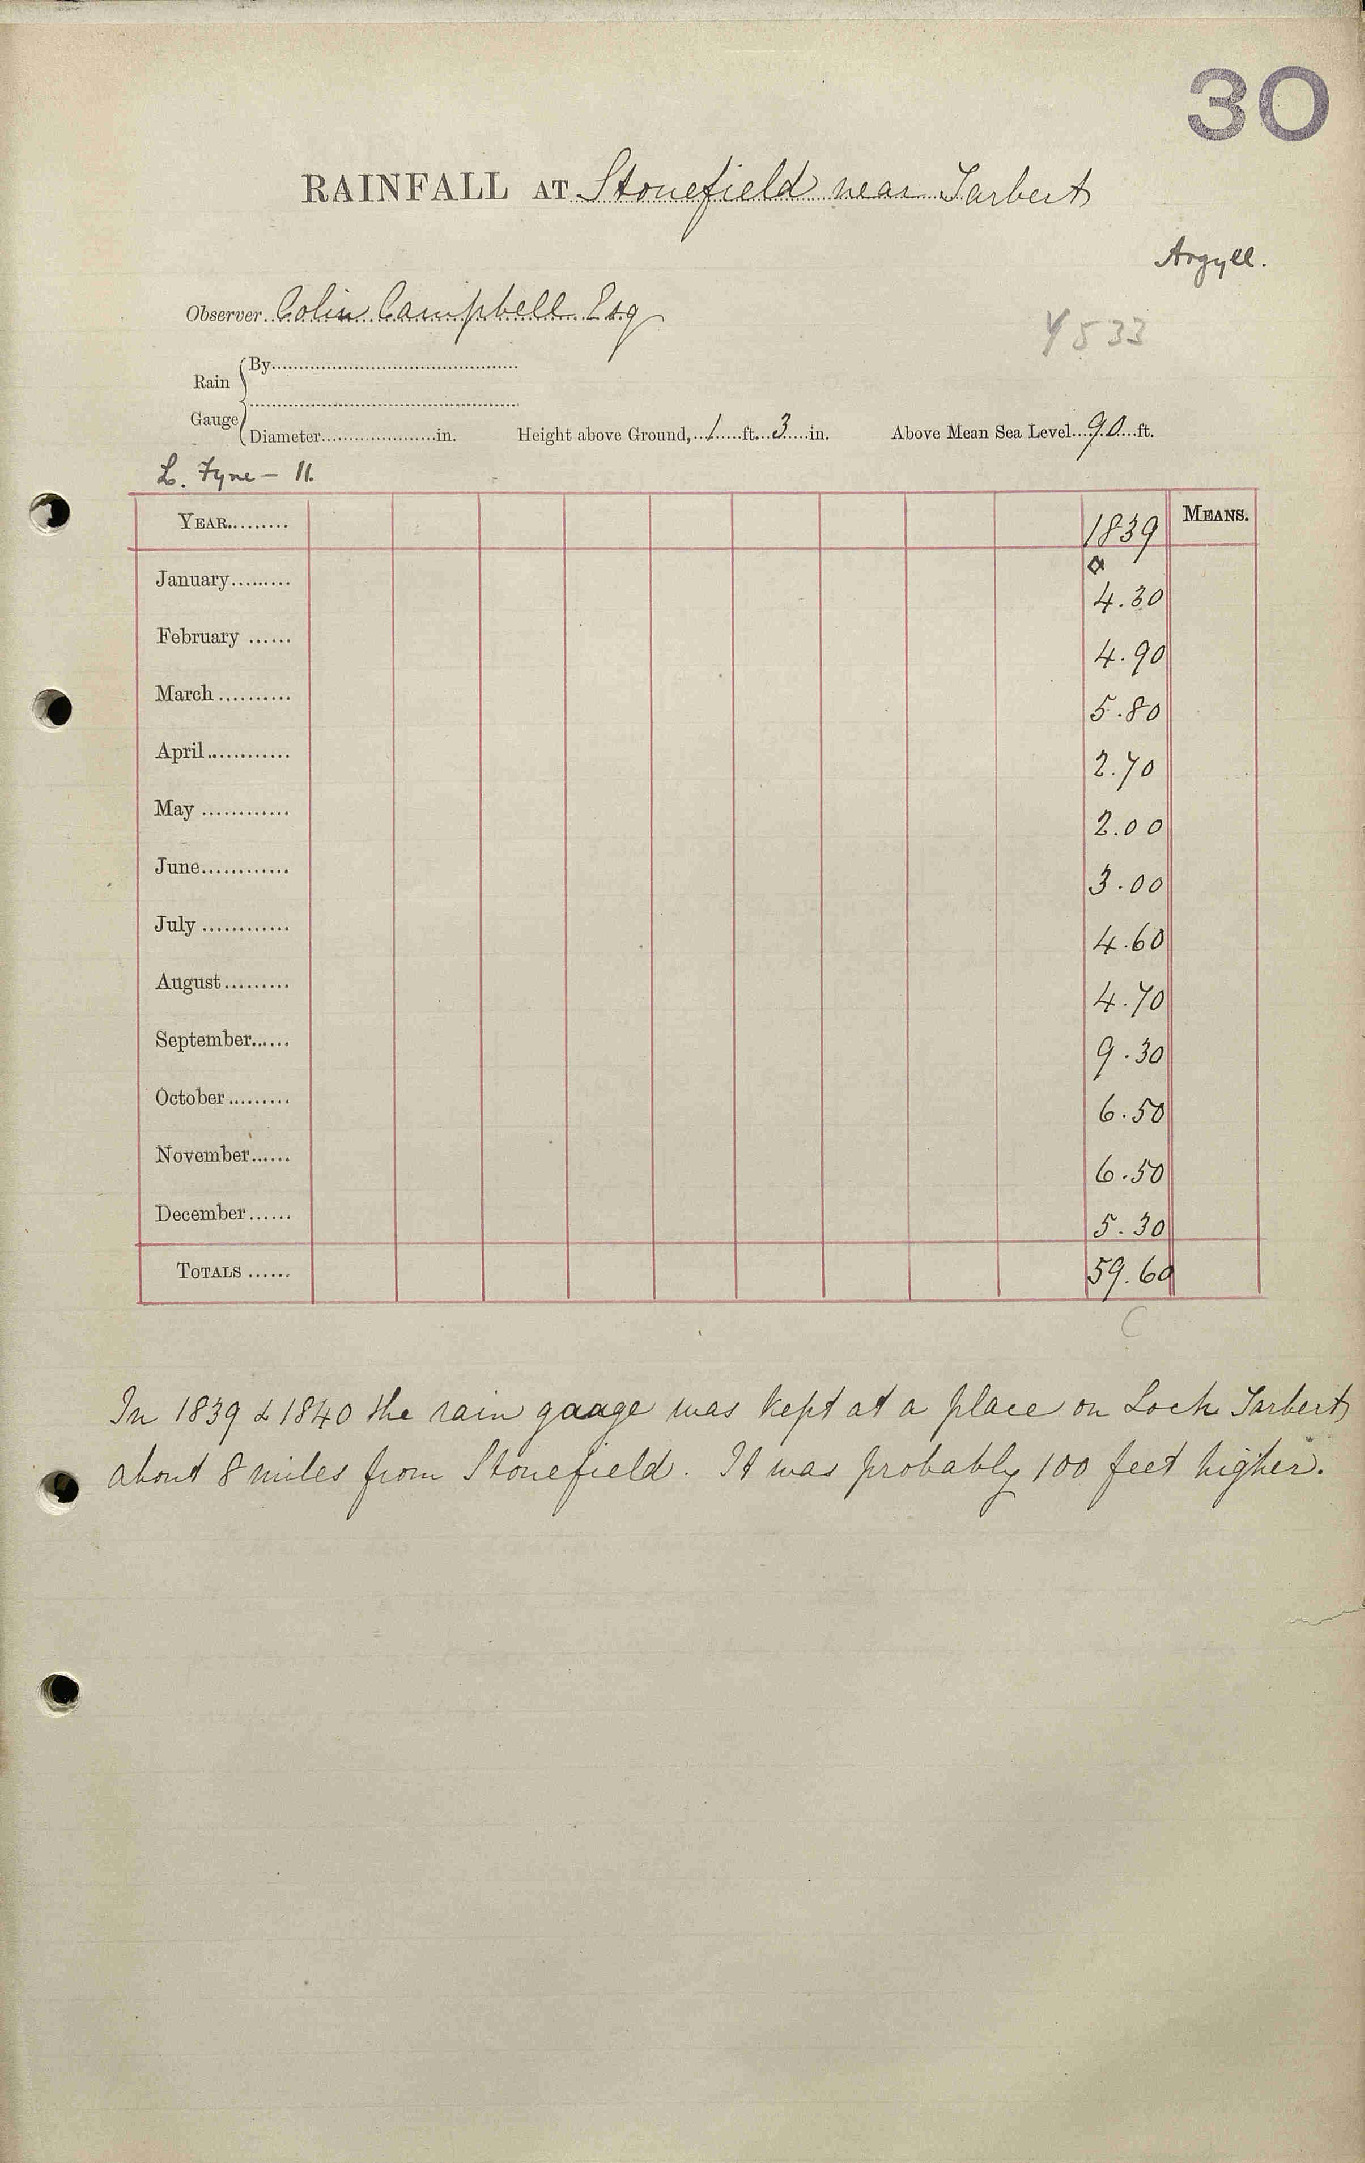 30
RAINFALL AT Stonefield near Tarbert
Argyll.
Observer Colin Campbell Esq
4533
Rain Gauge { By
Diameter in. Height above Ground, 1 ft. 3 in. Above Mean Sea Level 90 ft.
L. Fyne - 11.
YEAR 1839 MEANS.
January 4.30
February 4.90
March 5.80
April 2.70
May 2.00
June 3.00
July 4.60
August 4.70
September 9.30
October 6.50
November 6.50
December 5.30
TOTALS 59.60
In 1839 & 1840 the rain gauge was kept at a place on Loch Tarbert
about 8 miles from Stonefield. It was probably 100 feet higher.